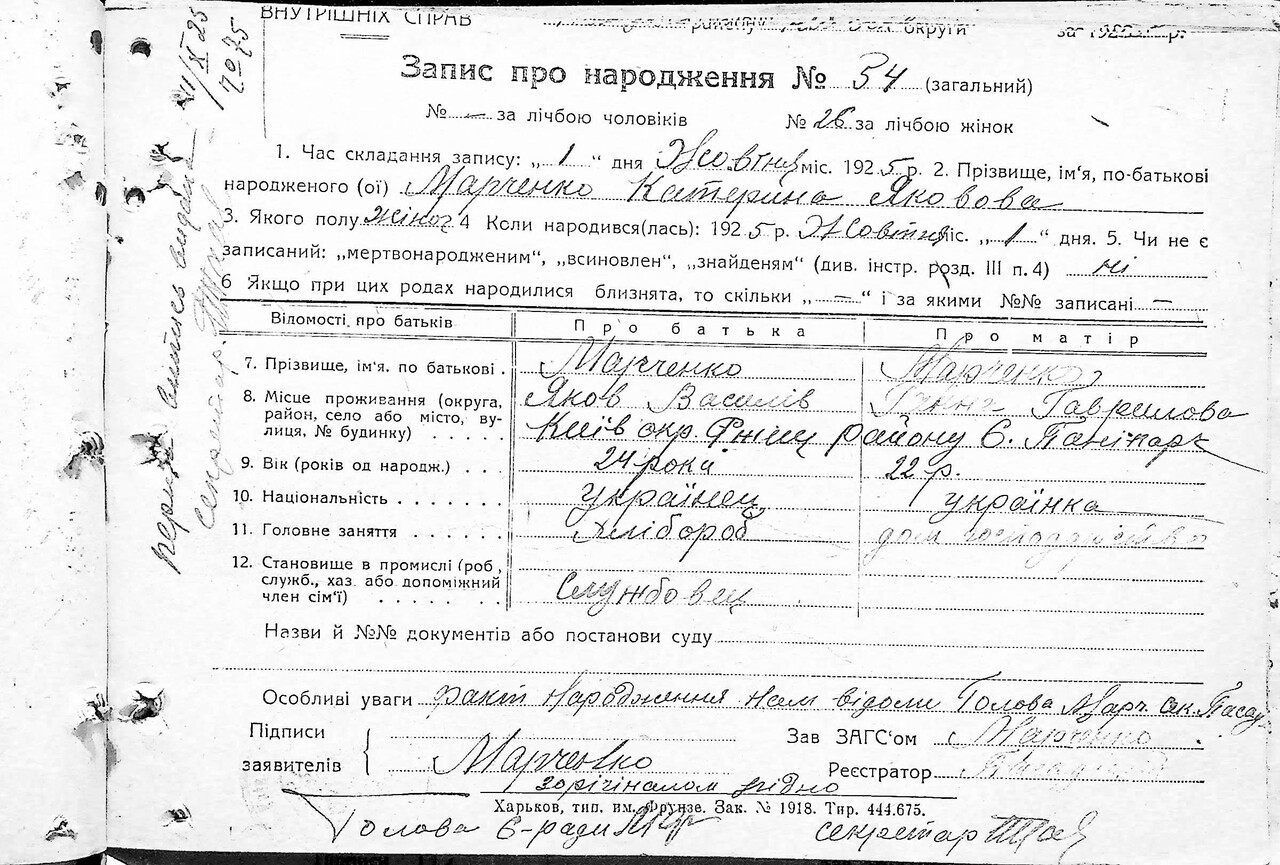 ВНУТРІШНІХ СПРАВ
округи за 1925 р.
Запис про народження № 34 (загальний)
№ — за лічбою чоловіків № 26 за лічбою жінок
1. Час складання запису: „ 1 “ дня Жовтня міс. 1925 р. 2. Прізвище, ім'я, по-батькові
народженого (ої) Марченко Катерина Яковова
3. Якого полу жіноч 4 Коли народився(лась): 1925 р. Жовтня міс. „ 1 “ дня. 5. Чи не є
записаний: „мертвонародженим“, „всиновлен“, „знайденям“ (див. інстр. розд. III п. 4) ні
6 Якщо при цих родах народилися близнята, то скільки „ — “ і за якими №№ записані —
Відомості про батьків Про батька Про матір
7. Прізвище, ім'я. по батькові . Марченко Марченко
8. Місце проживання (округа, Яков Василів Гаврилова
район, село або місто, ву-
лиця, № будинку) . . . . . Київ окр. Ржищ району С.
9. Вік (років од народж.) . . . 24 роки 22 р.
10. Національність . . . . . . . українец українка
11. Головне заняття . . . . . . Хлібороб дом господарство
12. Становище в промислі (роб,
служб., хаз. або допоміжний
член сім'ї) . . . . . . . Службовец
Назви й №№ документів або постанови суду
Особливі уваги факт народження нам відоми Голова Марч Сек.
Підписи
заявителів Марченко
Зав ЗАГС'ом Марченко
Реєстратор
з орігіналом згідно
Харьков, тип. им. Фрунзе. Зак. № 1918. Тир. 444.675.
Голова С-ради секретар